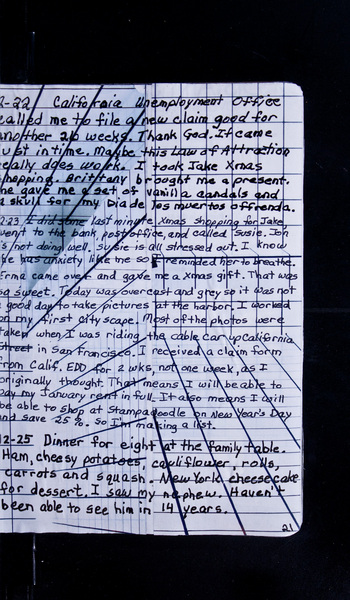 2-22 California Unemployment Office
called me to file a new claim good for
another 26 weeks. Thank God. It came
just in time. Maybe this Law of Attraction
really does work. I took Jake Xmas
shopping. Brittany brought me a present.
he gave me a set of vanilla candels and
a skull for my Diade los muertos offrenda.
2-23 I did some last minute Xmas shopping for Jake,
went to the bank, post office, and called Susie. Jon
is not doing well. Susie is all stressed out. I know
he has anxiety like me so I reminded her to breathe.
Erma came over and gave me a Xmas gift. That was
so sweet. Today was overcast and grey so it was not
a good day to take pictures at the harbor. I worked
on my first city scape. Most of the photos were
taken when I was riding the cable car up California
Street in San Francisco. I received a claim form
from Calif. EDD for 2 wks, not one week, as I
originally thought. That means I will be able to
pay my January rent in full. It also means I will
be able to shop at Stampadoodle on New Year's Day
and save 25%. So I'm making a list.
12-25 Dinner for eight at the family table.
Ham, cheesy potatoes, cauliflower, rolls,
carrots and squash. New York cheesecake
for dessert. I saw my nephew. Haven't
been able to see him in 14 years.
21